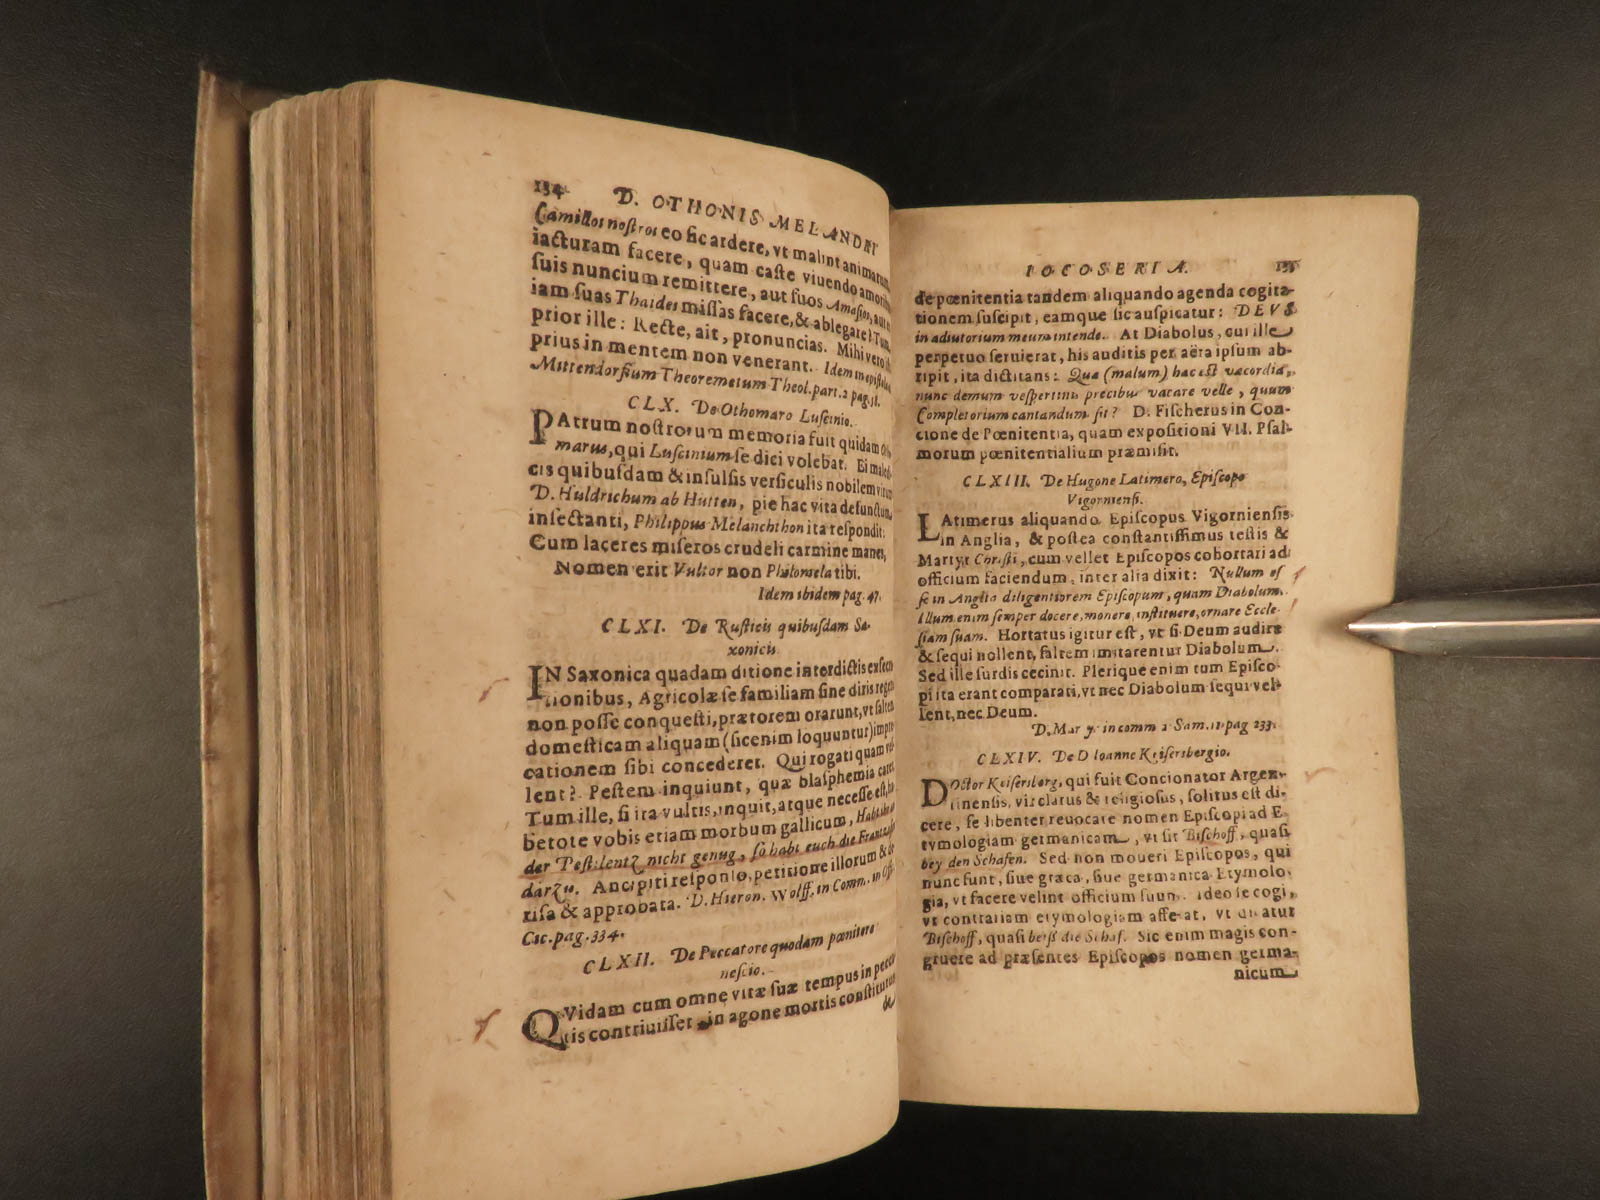 134 D. OTHONIS MELANDRI
Camillos noſtros eo ſic ardere, vt malint animarum
iacturam facere, quam caſte viuendo amoribus
ſuis nuncium remittere, aut ſuos Amaſios, aut
iam ſuas Thaides miſſas facere, & ablegare? Tum
prior ille: Recte, ait, pronuncias. Mihi vero
prius in mentem non venerant. Idem in epiſtola
Mittendorfium Theoremetum Theol. part. 2 pag. 18.
CLX. De Othomaro Luſcinio.
PAtrum noſtrorum memoria fuit quidam
marus, qui Luſcinium ſe dici volebat. Ei
cis quibuſdam & inſulſis verſiculis nobilem virum
D. Huldrichum ab Hutten, pie hac vita defunctum,
inſectanti, Philippus Melanchthon ita reſpondit:
Cum laceres miſeros crudeli carmine manes,
Nomen erit Vultor non Philomela tibi.
Idem ibidem pag. 47.
CLXI. De Ruſticis quibuſdam Sa-
xonicis.
IN Saxonica quadam ditione interdictis exſecra
tionibus, Agricolæ ſe familiam ſine diris regere
non poſſe conqueſti, prætorem orarunt, vt ſaltem
domeſticam aliquam (ſic enim loquuntur) impre
cationem ſibi concederet. Qui rogati quam vel
lent? Peſtem inquiunt, quæ blaſphemia caret
Tum ille, ſi ita vultis, inquit, atque neceſſe eſt, ha
betote vobis etiam morbum gallicum, Habt
der Peſtilentz nicht genug, ſo habt euch die Frantzoſen
darzu. Ancipiti reſponſo, petitione illorum &
riſa & approbata. D. Hieron. Wolff. in Comm. in Off.
Cic. pag. 334.
CLXII. De Peccatore quodam pœnitere
neſcio.
QVidam cum omne vitæ ſuæ tempus in pecca
tis contriuiſſet in agone mortis conſtitutus
de
IOCOSERIA. 135
de pœnitentia tandem aliquando agenda cogita-
tionem ſuſcipit, eamque ſic auſpicatur: DEUS
in adiutorium meum intende. At Diabolus, cui ille
perpetuo ſeruierat, his auditis per aëra ipſum ab-
ripit, ita dictitans: Quæ (malum) hæc eſt vacordia,
nunc demum veſpertinis precibus vacare velle, quum
Completorium cantandum ſit? D. Fiſcherus in Con-
cione de Pœnitentia, quam expoſitioni VII. Pſal-
morum pœnitentialium præmiſit.
CLXIII. De Hugone Latimero, Epiſcopo
Vigornienſi.
LAtimerus aliquando Epiſcopus Vigornienſis
in Anglia, & poſtea conſtantiſſimus teſtis &
Martyr Chriſti, cum vellet Epiſcopos cohortari ad
officium faciendum, inter alia dixit: Nullum eſ
ſe in Anglia diligentiorem Epiſcopum, quam Diabolum.
Illum enim ſemper docere, monere, inſtituere, ornare Eccle-
ſiam ſuam. Hortatus igitur eſt, vt ſi Deum audire
& ſequi nollent, ſaltem imitarentur Diabolum.
Sed ille ſurdis cecinit. Plerique enim tum Epiſco-
pi ita erant comparati, vt nec Diabolum ſequi vel-
lent, nec Deum.
D. Mar in comm 2 Sam. pag 233.
CLXIV. De D Ioanne Keiſersbergio.
DOctor Keiſersberg, qui fuit Concionator Argen-
tinenſis, vir clarus & religioſus, ſolitus eſt di-
cere, ſe libenter reuocare nomen Epiſcopi ad E-
tymologiam germanicam, vt ſit Biſchoff, quaſi
bey den Schafen. Sed non moueri Epiſcopos, qui
nunc ſunt, ſiue græca, ſiue germanica Etymolo-
gia, vt facere velint officium ſuum. Ideo ſe cogi,
vt contrariam etymologiam afferat, vt dicatur
Biſchoff, quaſi beiß die Schaf. Sic enim magis con-
gruere ad præſentes Epiſcopos nomen germa-
nicum